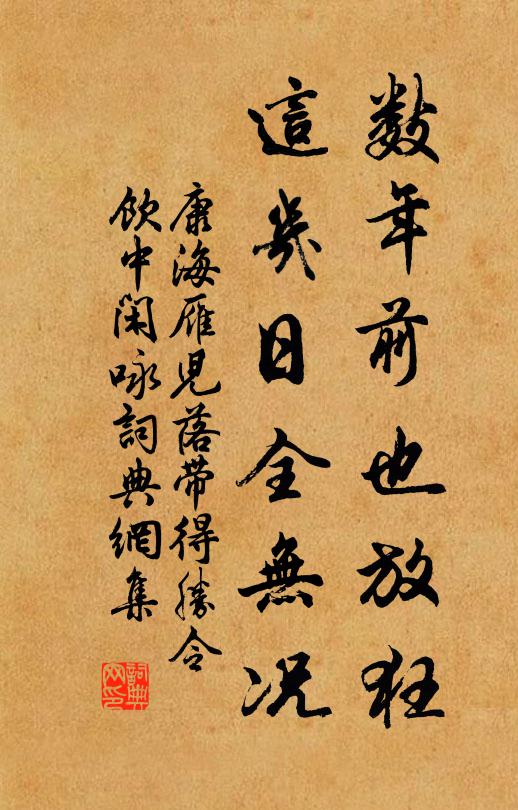 數年前也放狂
這幾日全無況
康海雁兒落帶得勝令
飲中閑咏詞典網集
詞典網印